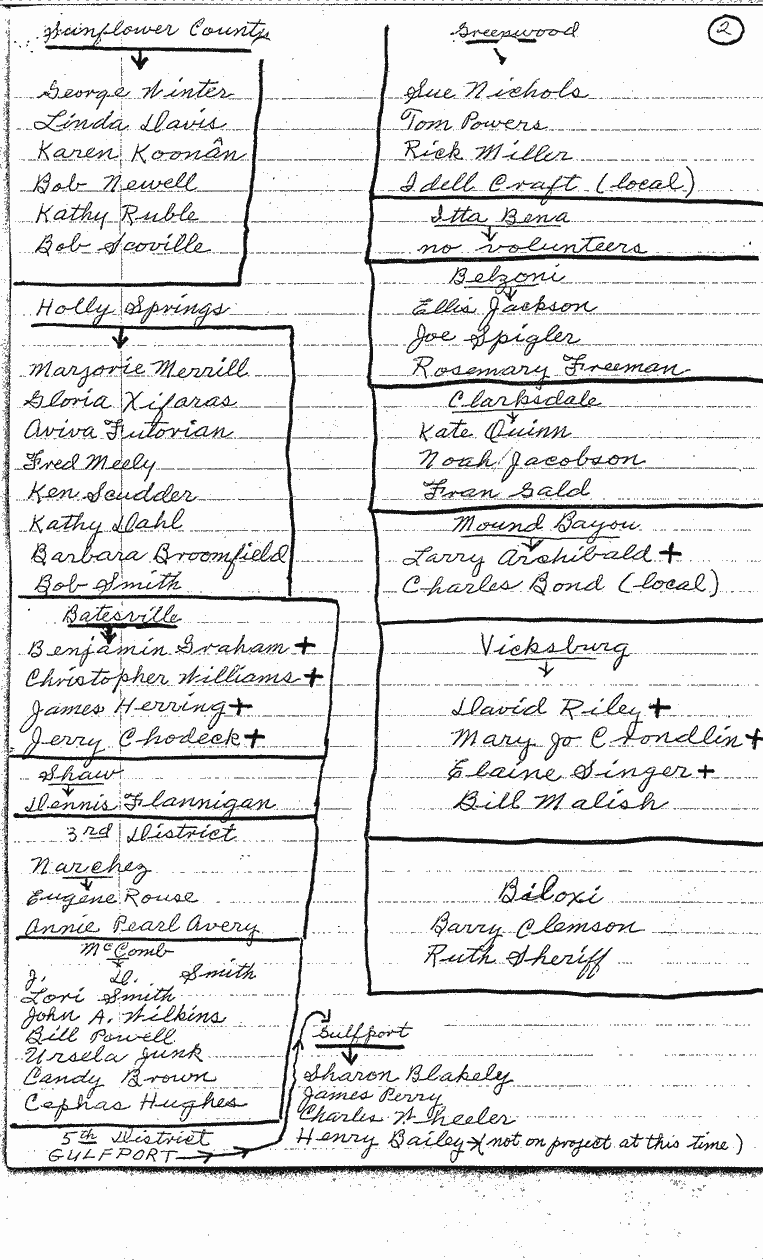 Sunflower County
George Winter
Linda Davis
Karen Koonan
Bob Newell
Kathy Ruble
Bob Scoville
Holly Springs
Marjorie Merrill
Gloria Xifaras
Aviva Futorian
Fred Meely
Ken Scudder
Kathy Dahl
Barbara Broomfield
Bob Smith
Batesville
Benjamin Graham +
Christopher Williams +
James Herring +
Jerry Chodeck +
Shaw
Dennis Flannigan
3rd District
Narchez
Eugene Rouse
Annie Pearl Avery
McComb
J. D. Smith
Lori Smith
John A. Wilkins
Bill Powell
Ursela Junk
Candy Brown
Cephas Hughes
5th District
GULFPORT
2
Greenwood
Sue Nichols
Tom Powers
Rick Miller
Idell Craft (local)
Itta Bena
no volunteers
Belzoni
Ellis Jackson
Joe Spigler
Rosemary Freeman
Clarksdale
Kate Quinn
Noah Jacobson
Fran Gald
Mound Bayou
Larry Archibald +
Charles Bond (local)
Vicksburg
David Riley +
Mary Jo Chondlin +
Elaine Singer +
Bill Malish
Biloxi
Barry Clemson
Ruth Sheriff
Gulfport
Sharon Blakely
James Perry
Charles Wheeler
Henry Bailey (not on project at this time)